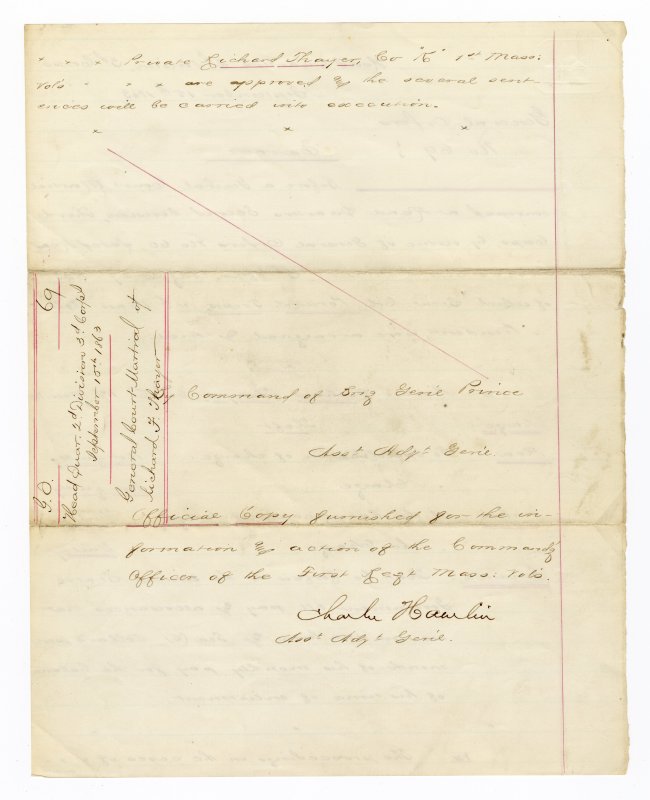 " " Private Richard Thayer, Co "K" 1st Mass:
Vols " " " are approved & the several sent-
ences will be carried into execution.
" " "
By Command of Brig Gen'l Prince
Asst Adjt Gen'l.
Official Copy furnished for the in-
formation & action of the Commandg
Officer of the First Regt Mass: Vols.
Charles Hamlin
Asst Adjt Gen'l.
G.O. 69
Head Quar. 2d Division 3d Corps.
September 15th 1863
General Court-Martial of
Richard F. Thayer